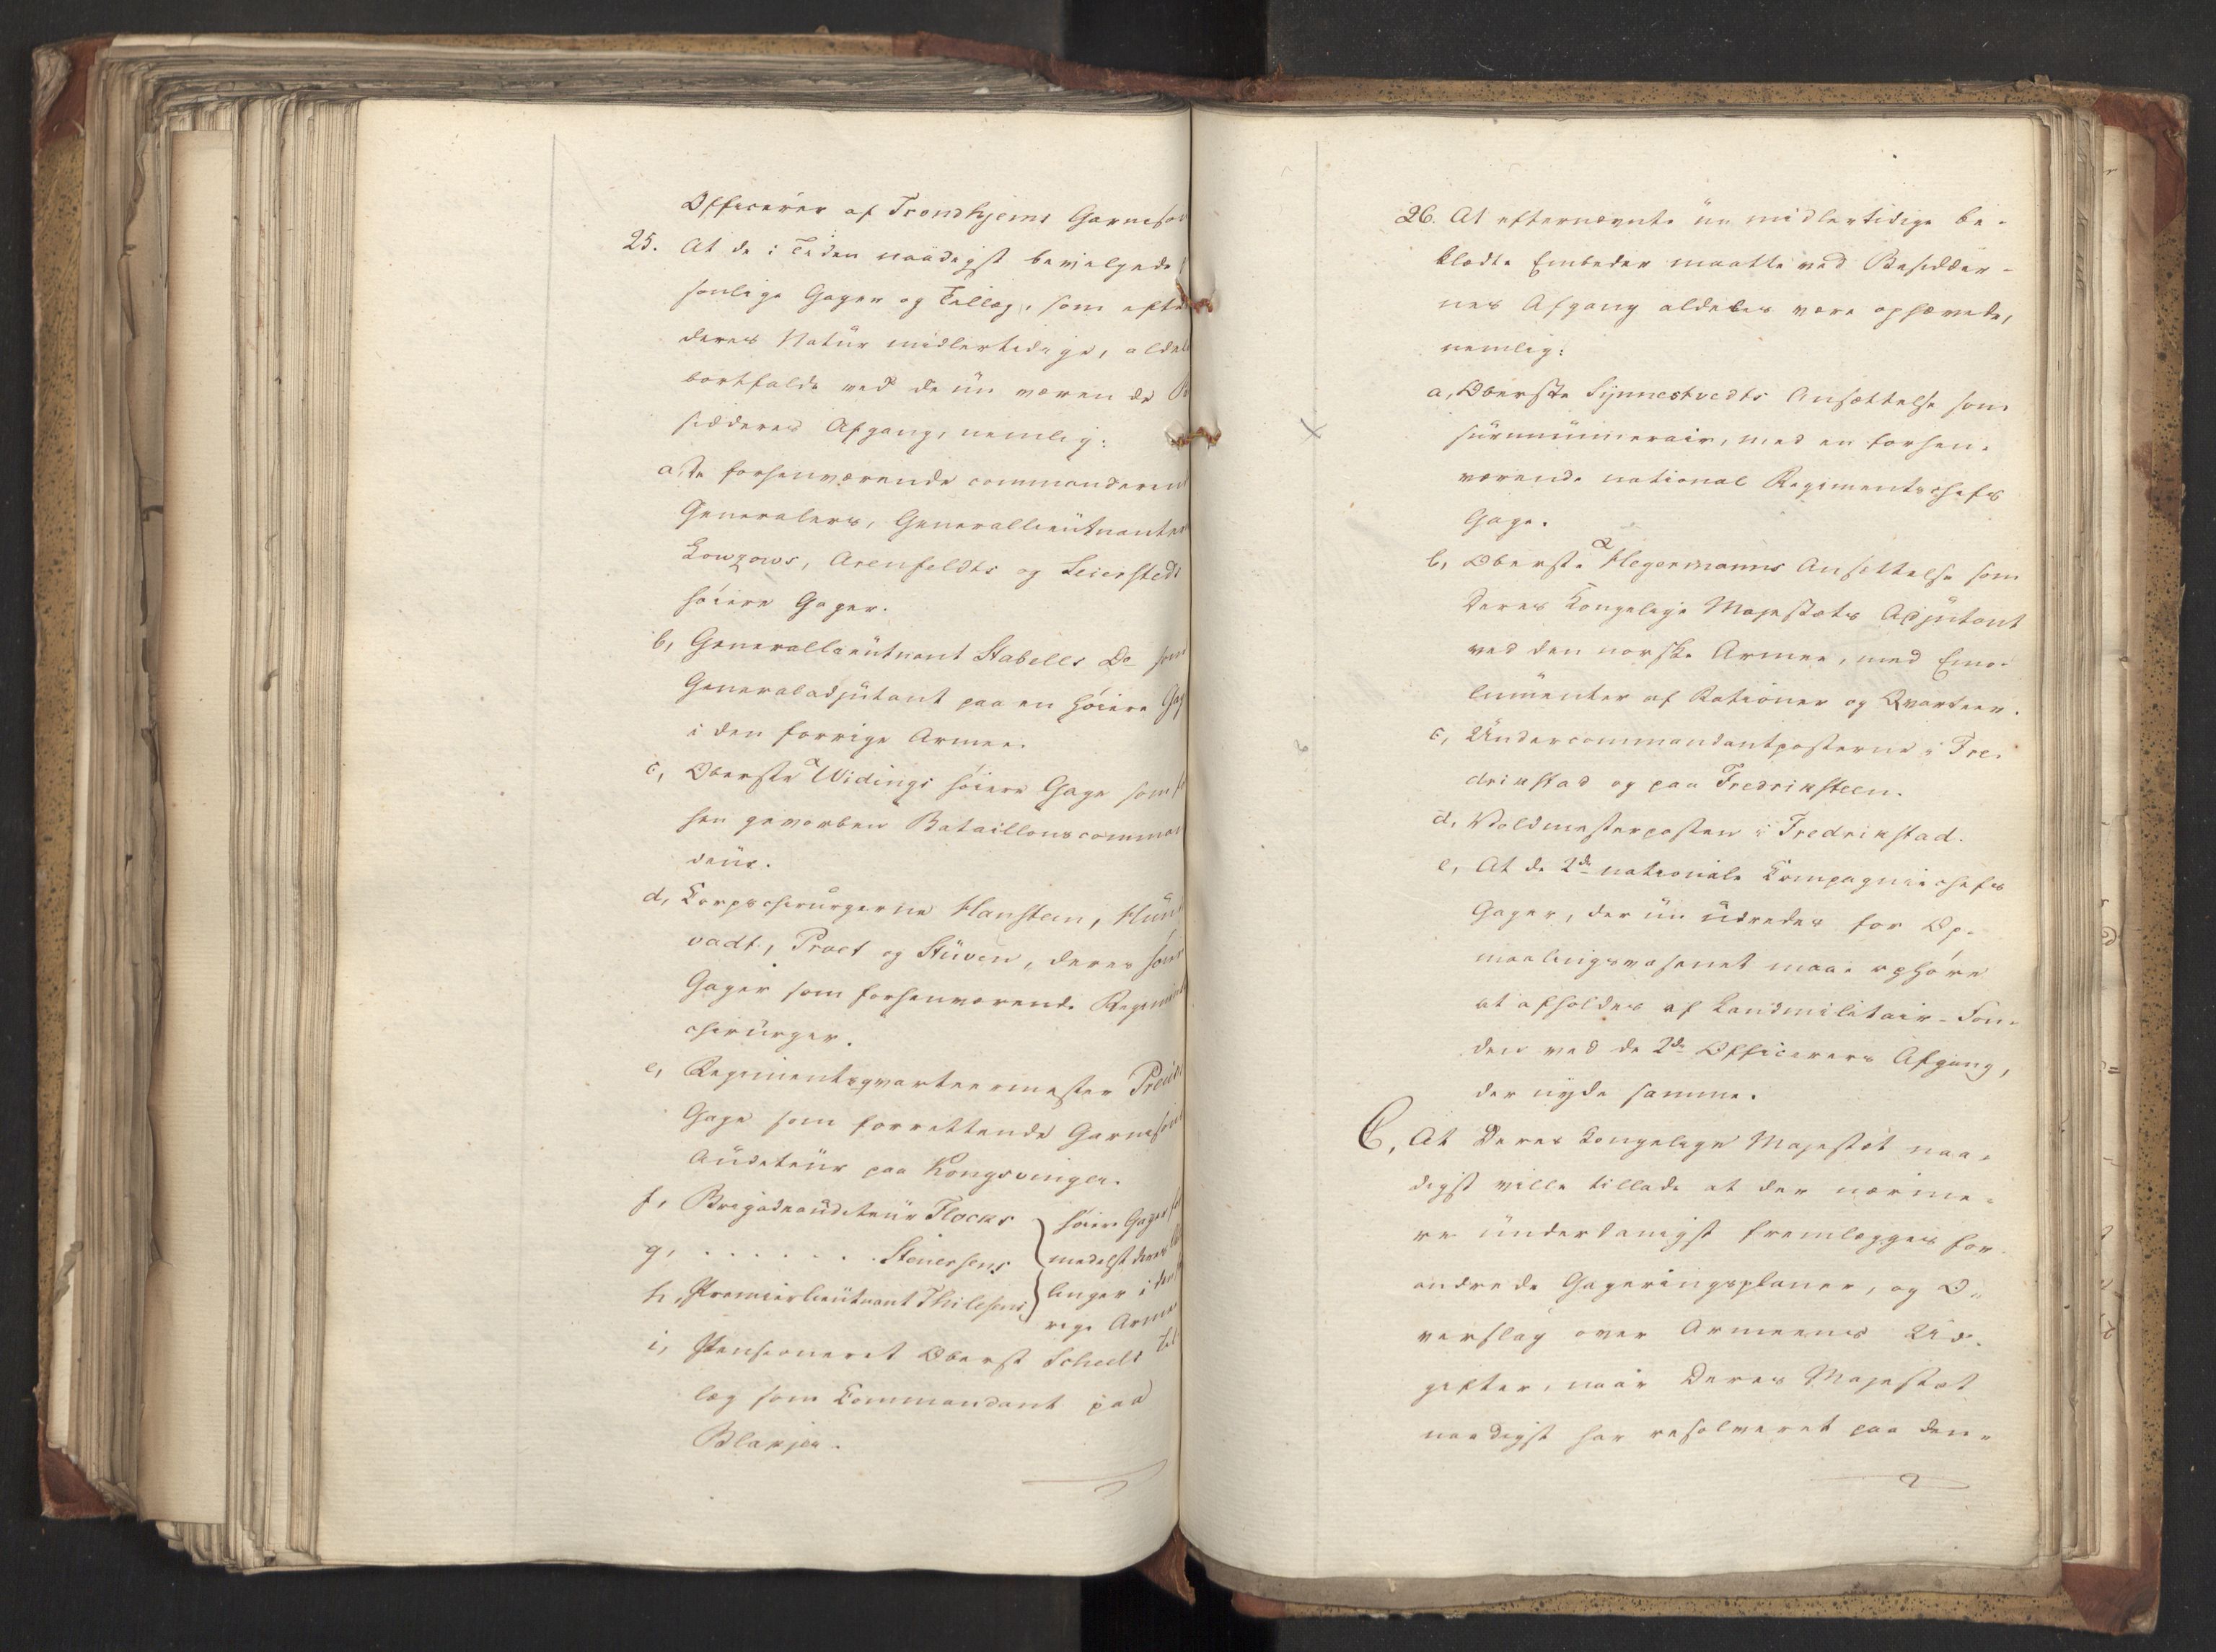 Officerer af Trondhjems Garnison
25. At de i Tiden naadigst bevilgede
sonlige Gager og Tillæg, som efter
deres Natur midlertidige, aldel
bortfalde ved de nu værende Be
sidderes Afgang, nemlig:
a, De forhenværende commanderend
Generalers, Generallieutnanter
Lowzows, Arenfeldts og Leierstedt
høiere Gager.
b, Generallieutnant Stabells Do som
Generaladjutant paa en høiere Gag
i den forrige Armee.
c, Oberste Widings høiere Gage som f
hen gevorben Bataillonscomman
deur.
d, Corpschirurgerne Hanstein, Hun
vadt, Proet og Stüven, deres høiere
Gager som forhenværende Regiments
chirurger.
e, Regimentsqvarteermester
Gage som forrettende Garnisons
Auditeur paa Kongsvinger.
f, Brigadeauditeur Flocks
g, . . . . . . . Stenersens
h, Premierlieutnant Thilesens
høiere Gager for
medelst deres
linger i den
rige Armee
i, Pensioneret Oberst Scheels Til
læg som Commandant paa
Blakjer.
26. At efternævnte nu midlertidige be-
klædte Embeder maatte ved Besidder-
nes Afgang aldeles være ophævede,
nemlig:
a, Oberste Synnestvedts Ansættelse som
surnummerair, med en forhen-
værende national Regimentschefs
Gage.
b, Oberste Hegermanns Ansættelse som
Deres Kongelige Majestæts Adjutant
ved den norske Armee, med Emo-
lumenter af Rationer og Qvarteer.
c, Undercommandantposterne i Fre-
drikstad og paa Fredriksteen.
d, Voldmesterposten i Fredrikstad.
e, At de 2de nationale Compagniechefs
Gager, der nu udredes for Op-
maalingsvæsenet maae ophøre
at afholdes af Landmilitair-Fon-
den ved de 2de Officerers Afgang,
der nyde samme.
C, At Deres Kongelige Majestæt naa-
digst ville tillade at der nærme-
re underdanigst fremlægges for-
andrede Gageringsplaner, og O-
verslag over Armeens Ud-
gifter, naar Deres Majestæt
naadigst har resolveret paa den-